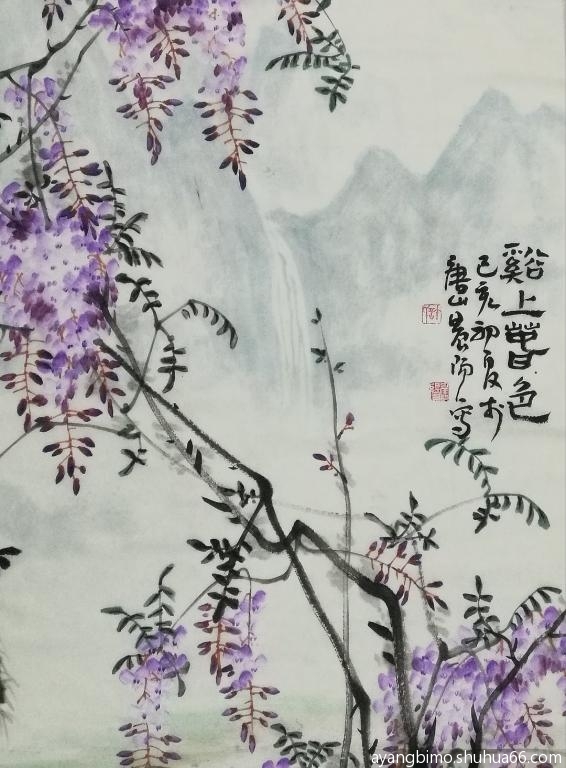 谿上暮色
己亥初夏於
唐山晨陽寫
ayangbimo.shuhua66.com